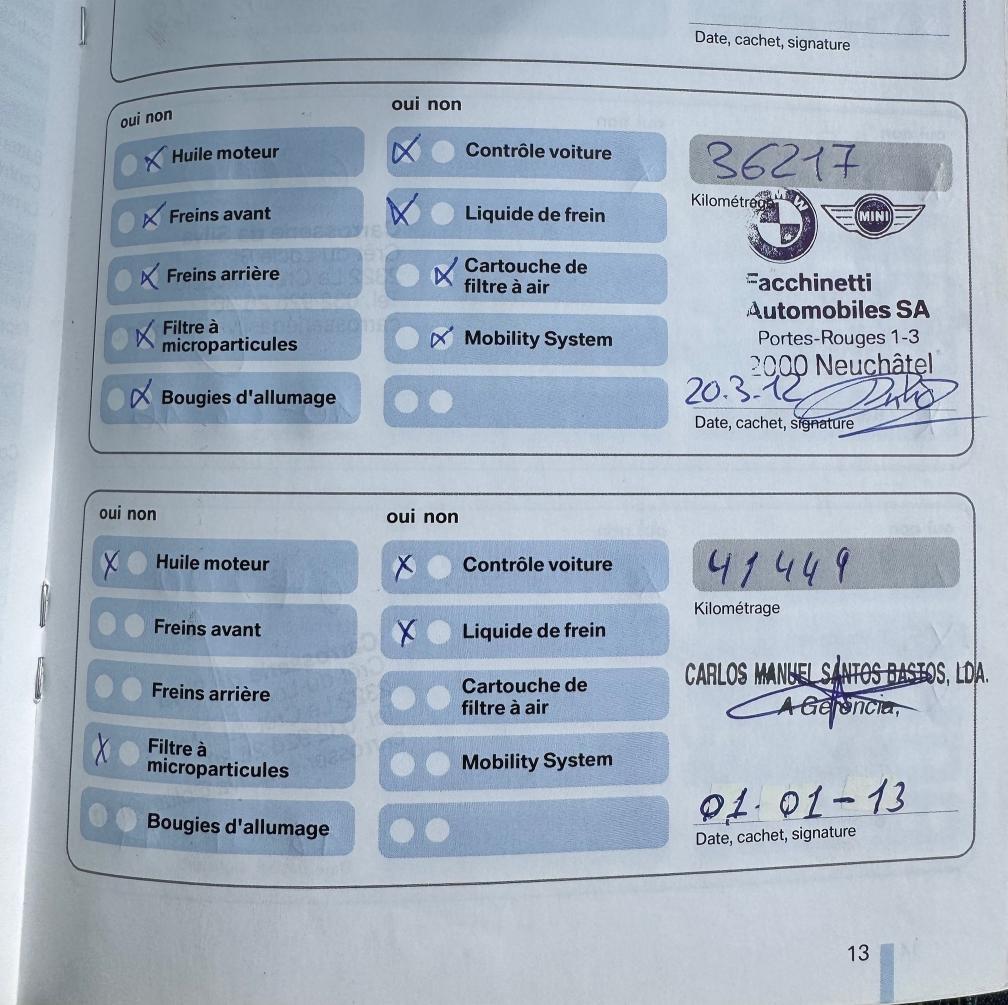 Date, cachet, signature
oui non
oui non
Huile moteur
Contrôle voiture
36217
Freins avant
Liquide de frein
Kilométrage
BMW
MINI
Freins arrière
Cartouche de
filtre à air
Facchinetti
Automobiles SA
Filtre à
microparticules
Mobility System
Portes-Rouges 1-3
2000 Neuchâtel
Bougies d'allumage
20.3.12
Date, cachet, signature
oui non
oui non
Huile moteur
Contrôle voiture
41449
Kilométrage
Freins avant
Liquide de frein
Freins arrière
Cartouche de
filtre à air
CARLOS MANUEL SANTOS BASTOS, LDA.
A Gerência,
Filtre à
microparticules
Mobility System
Bougies d'allumage
01-01-13
Date, cachet, signature
13